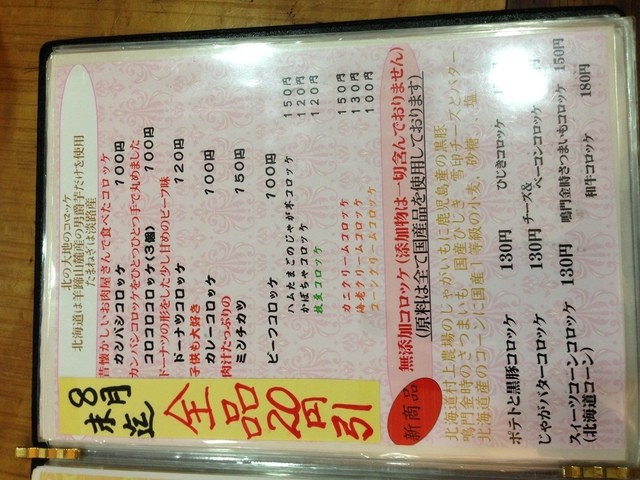 北の大地のコロッケ
北海道は羊蹄山麓産の男爵芋だけを使用
たまねぎは淡路産
昔懐かしいお肉屋さんで食べたコロッケ
カンパシコロッケ 100円
カンパシコロッケをひとつひとつ手で丸めました
コロコロコロッケ(3個) 100円
ドーナツの形をした少し甘めのビーフ味
ドーナツコロッケ 120円
子供も大好き
カレーコロッケ 100円
肉汁たっぷりの
ミンチカツ 150円
ビーフコロッケ 100円
ハムたまごのじゃが本コロッケ 150円
かぼちゃコロッケ 120円
枝豆コロッケ 120円
カニクリームコロッケ 150円
海老クリームコロッケ 130円
コーンクリームコロッケ 100円
8月末迄
全品20円引
新商品
無添加コロッケ(添加物は一切含んでおりません)
(原料は全て国産品を使用しております)
北海道村上農場のじゃがいもに鹿児島産の黒豚
鳴門金時のさつまいも 国産ひじき 雪印チーズとバター
北海道産のコーンに国産1等級の小麦、砂糖、塩
ポテトと黒豚コロッケ 130円
じゃがバターコロッケ 130円
スイーツコーンコロッケ 130円
(北海道コーン)
ひじきコロッケ
チーズ&ベーコンコロッケ 円
鳴門金時さつまいもコロッケ 150円
和牛コロッケ 180円